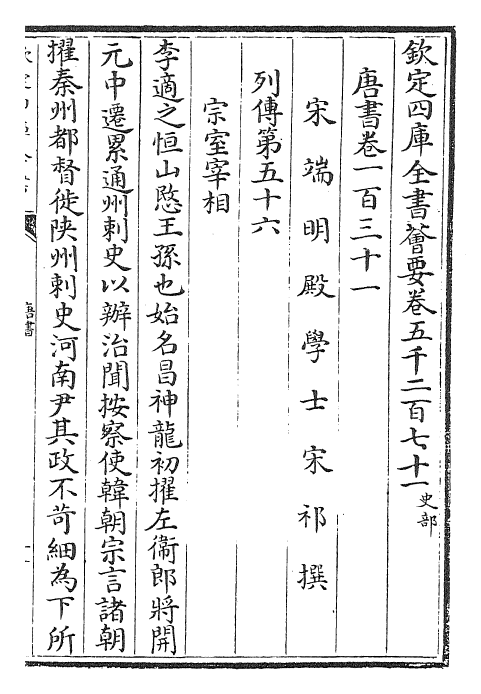 欽定四庫全書薈要卷五千二百七十一史部
唐書卷一百三十一
宋端明殿學士宋祁撰
列傳第五十六
宗室宰相
李適之恒山愍王孫也始名昌神龍初擢左衞郎將開
元中遷累通州刺史以辦治聞按察使韓朝宗言諸朝
擢秦州都督徙陜州刺史河南尹其政不苛細為下所
唐書